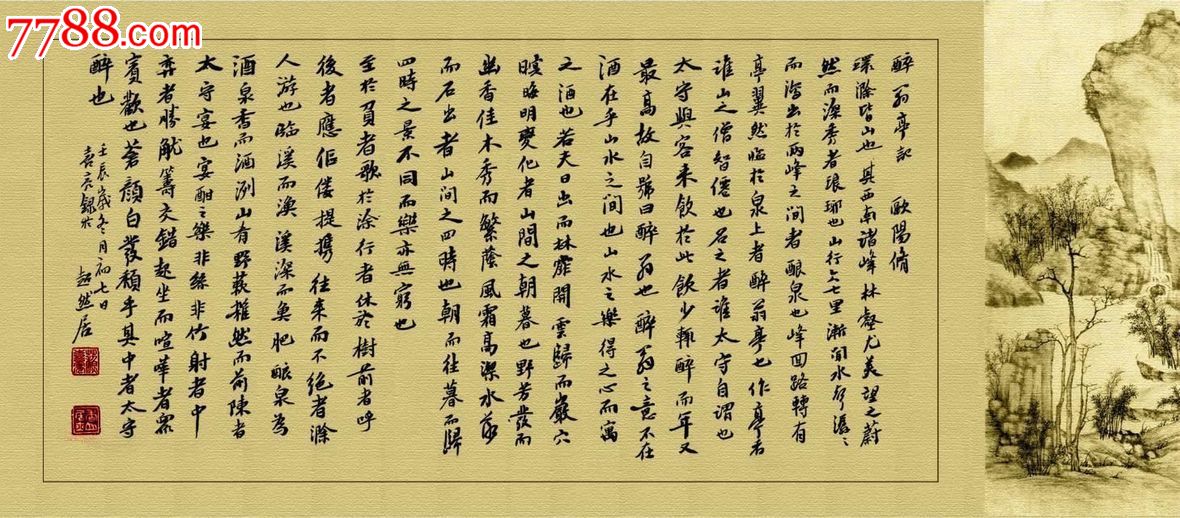 7788.com
醉翁亭記 歐陽脩
環滁皆山也其西南諸峰林壑尤美望之蔚
然而深秀者琅琊也山行六七里漸聞水聲潺〻
而瀉出於兩峰之間者釀泉也峰回路轉有
亭翼然臨於泉上者醉翁亭也作亭者
誰山之僧智僊也名之者誰太守自謂也
太守與客來飲於此飲少輒醉而年又
最高故自號曰醉翁也醉翁之意不在
酒在乎山水之間也山水之樂得之心而寓
之酒也若夫日出而林霏開雲歸而巖穴
暝晦明變化者山間之朝暮也野芳發而
幽香佳木秀而繁蔭風霜高潔水落
而石出者山間之四時也朝而往暮而歸
四時之景不同而樂亦無窮也
至於負者歌於塗行者休於樹前者呼
後者應傴僂提攜往來而不絕者滁
人游也臨溪而漁溪深而魚肥釀泉為
酒泉香而酒洌山有野蔌雜然而前陳者
太守宴也宴酣之樂非絲非竹射者中
弈者勝觥籌交錯起坐而喧嘩者眾
賓歡也蒼顏白發頹乎其中者太守
醉也
壬辰歲冬月初七日
錄於 超然居